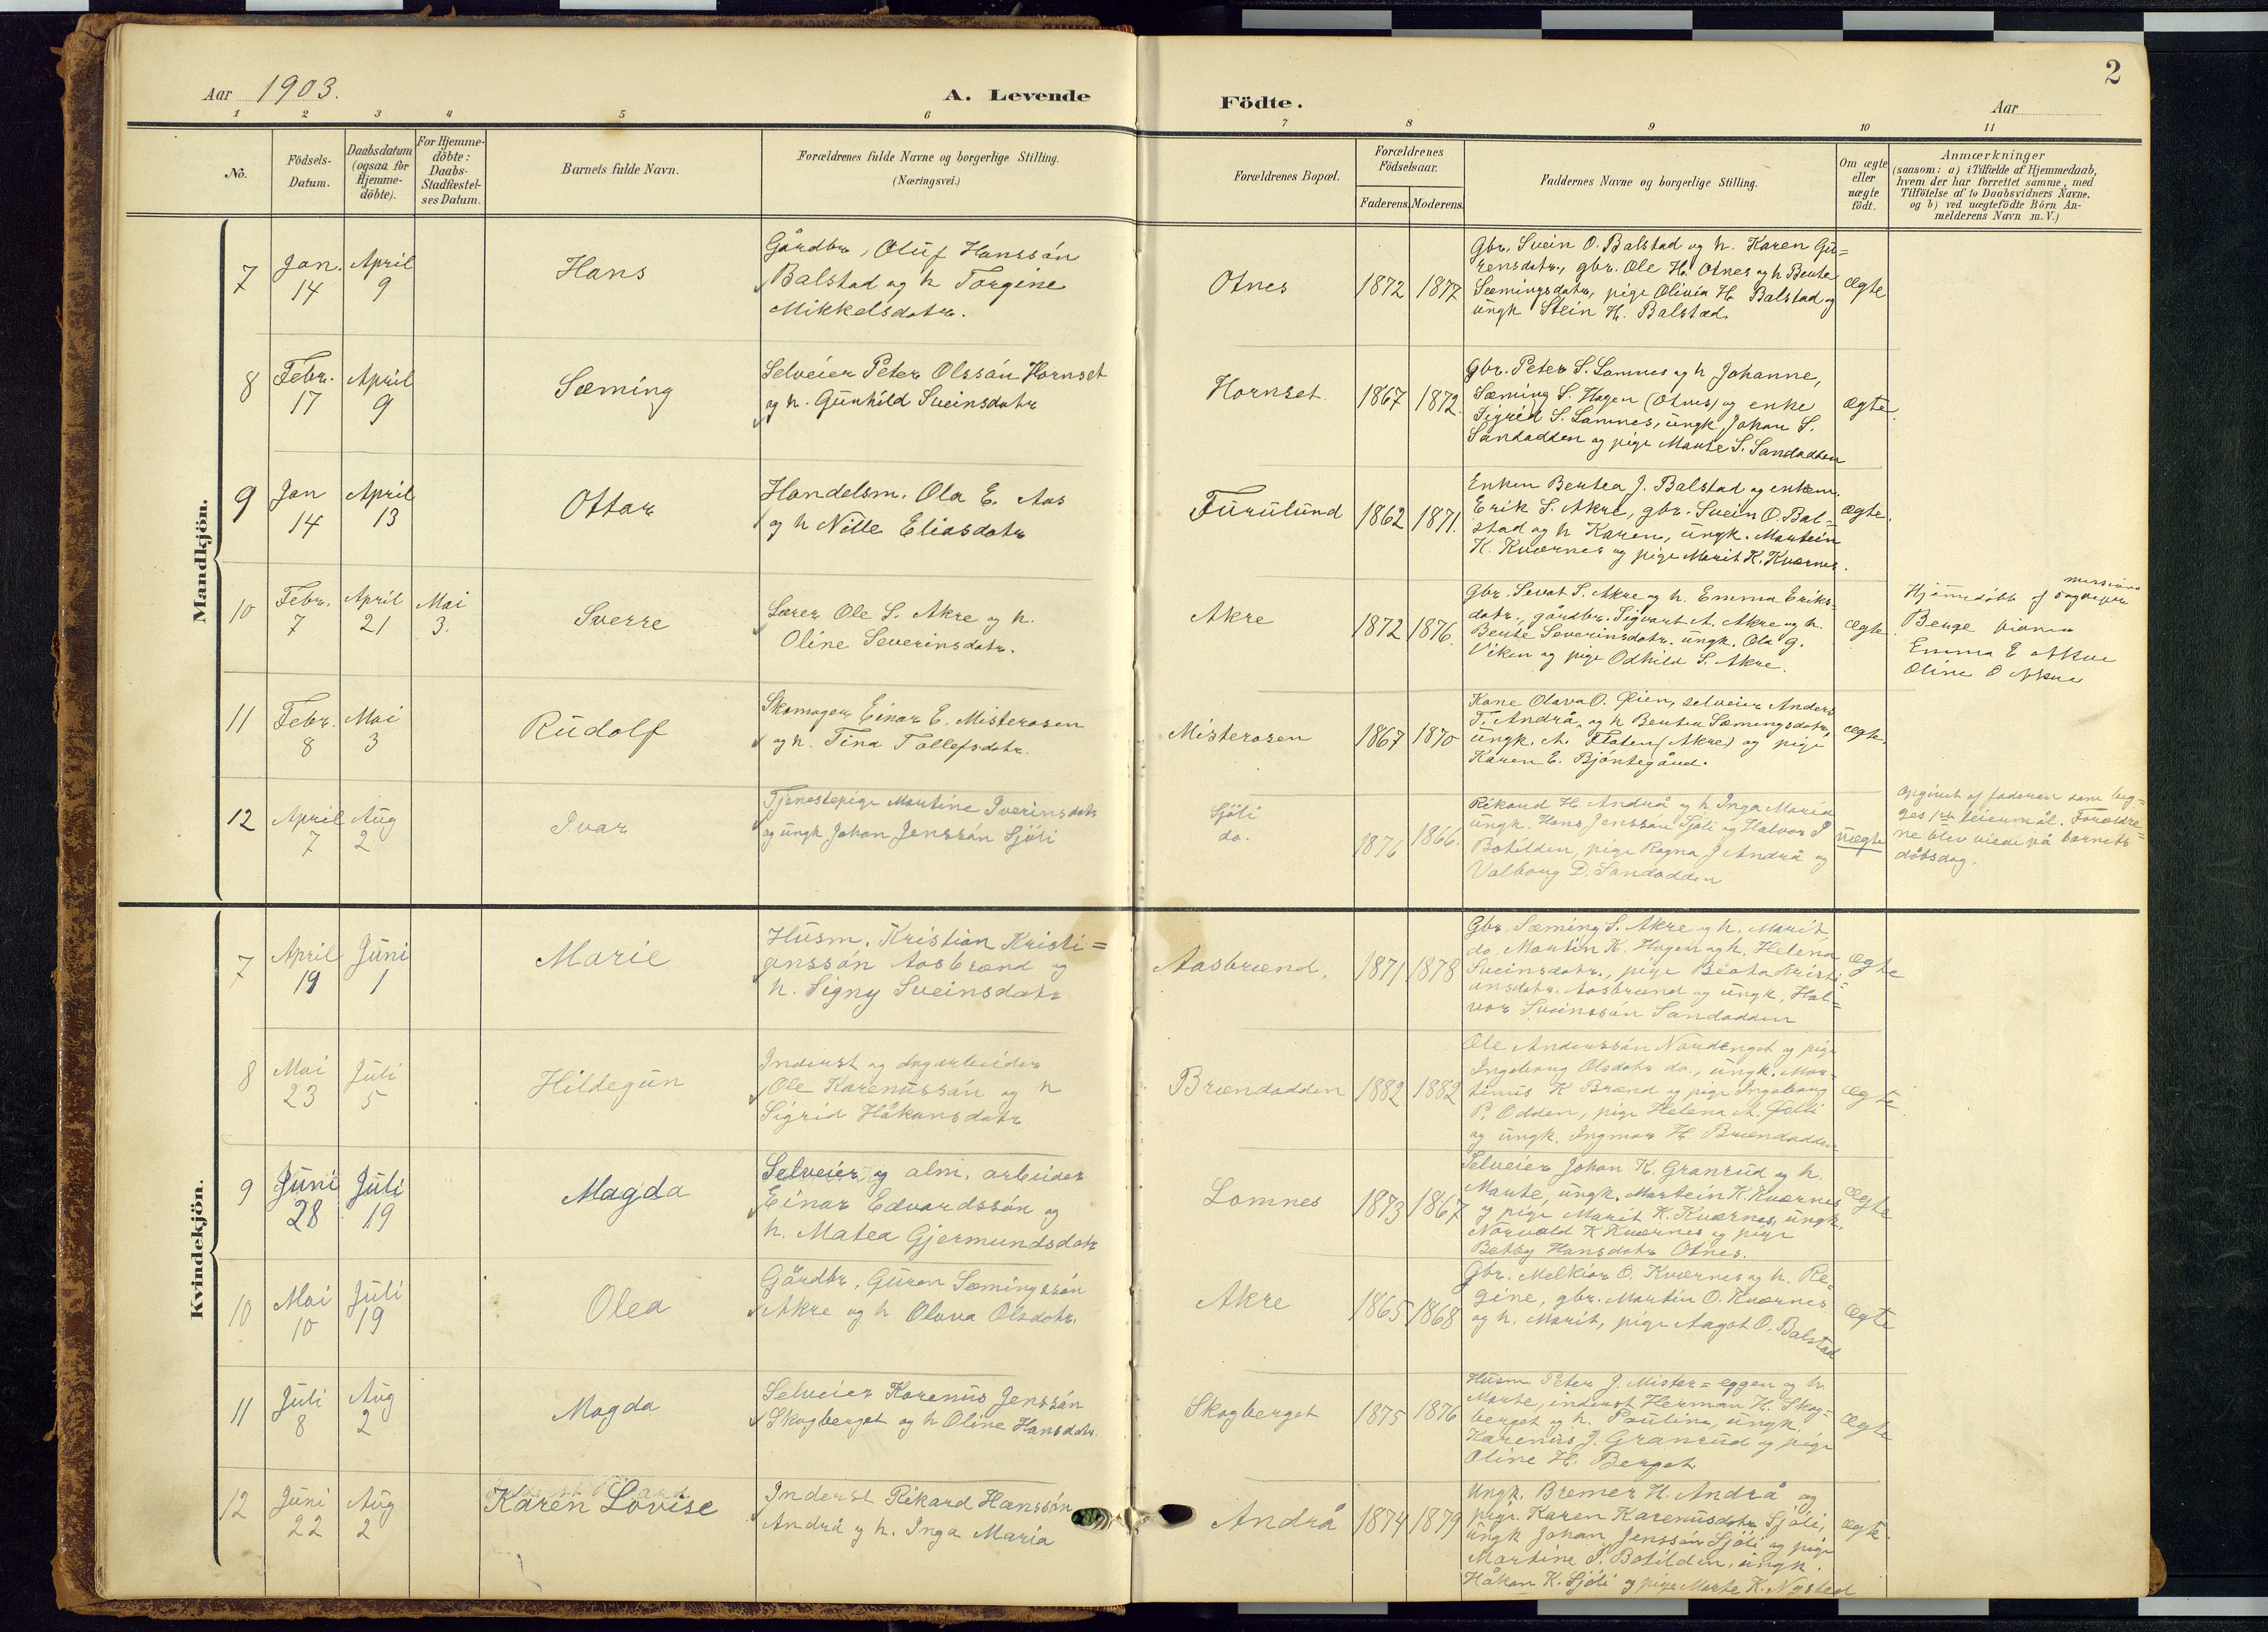 Aar 1903.
A. Levende
Födte.
Aar
2
1 2 3 4 5 6 7 8 9 10 11
No.
Födsels-
Datum.
Daabsdatum
(ogsaa for
Hjemme-
döbte).
For Hjemme-
döbte:
Daabs-
Stadfæstel-
ses Datum.
Barnets fulde Navn.
Forældrenes fulde Navne og borgerlige Stilling.
(Næringsvei.)
Forældrenes Bopæl.
Forældrenes
Födselsaar.
Faderens. Moderens.
Faddernes Navne og borgerlige Stilling.
Om ægte
eller
uægte
födt.
Anmærkninger
(saasom: a) i Tilfælde af Hjemmedaab,
hvem der har forrettet samme, med
Tilföielse af to Daabsvidners Navne.
og b) ved uægtefödte Börn An-
melderens Navn m. V.)
Mandkjön.
7
Jan. 14
April 9
Hans
Gårdbr, Oluf Hanssön
Balstad og h Torgine
Mikkelsdatr.
Otnes
1872 1877
Gbr. Svein O. Balstad og h. Karen Gu=
rensdatr., gbr. Ole H. Otnes og h Bente
Sæmingsdatr, pige Olivia H. Balstad og
ungk Stein H. Balstad.
Ægte
8
Febr. 17
April 9
Sæming
Selveier Peter Olssön Hornset
og h. Gunhild Sveinsdatr
Hornset.
1867 1872.
Gbr. Peter S. Lomnes og h Johanne,
Sæming S. Hagen (Otnes) og enke
Sigrid S. Lomnes, ungk. Johan S.
Sandodden og pige Marte S. Sandodden
Ægte.
9
Jan 14
April 13
Ottar
Handelsm. Ola E. Aas
og h Nille Eliasdatr
Furulund
1862 1871.
Enken Bertea J. Balstad og enkem.
Erik S. Akre, gbr. Svein O. Bal=
stad og h Karen, ungk. Martein
K. Kværnes og pige Marit K. Kværnes.
Ægte.
10
Febr. 7
April 21
Mai 3.
Sverre
Lærer Ole S. Akre og h.
Oline Severinsdatr.
Akre
1872 1876.
Gbr. Sevat S. Akre og h. Emma Eriks=
datr., gårdbr. Sigvart A. Akre og h.
Bente Severinsdatr. ungk. Ola G.
Viken og pige Odhild S. Akre.
Ægte.
Hjemmedöbt af
Berge
Emma E Akre
Oline O Akre
11
Febr. 8
Mai 3
Rudolf
Skomager Einar E. Misterosen
og h. Tina Tollefsdatr.
Misterosen
1867 1870
Kone Olava O. Öien, selveier Anders
T. Andrå, og h Bertea Sæmingsdatr,
ungk. A. Floten (Akre) og pige
Karen E. Bjöntegård.
Ægte.
12
April 7
Aug 2
Ivar
Tjenestepige Martine Iverinsdatr
og ungk Johan Jenssön Sjöli
Sjöli
do.
1876 1866.
Rikard H. Andrå og h Inga Maria
ungk. Hans Jenssön Sjöli og Halvor P
Botilden, pige Ragna J Andrå og
Valborg D. Sandodden
uægte
Opgivet af faderen som beg=
ges 1ste leiermål. Forældre=
ne blev viede på barnets
döbsdag.
Kvindekjön.
7
April 19
Juni 1
Marie
Husm. Kristian Kristi=
anssön Aasbrænd og
h. Signy Sveinsdatr
Aasbrænd.
1871 1878
Gbr. Sæming S. Akre og h. Marit
do. Martin K. Hagen og h. Helena
Sveinsdatr., pige Beata Kristi=
ansdatr. Aasbrænd og ungk. Hal=
vor Sveinssön Sandodden
Ægte
8
Mai 23
Juli 5
Hildegun
Inderst og dagarbeider
Ole Karenussön og h
Sigrid Håkonsdatr
Brændodden
1882 1882
Ole Anderssön Nordenget og pige
Ingeborg Olsdatr do., ungk. Mar=
tinus K Brænd og pige Ingeborg
P. Odden, pige Helena A.
og ungk. Ingmar H. Brændodden
Ægte
9
Juni 28
Juli 19
Magda
Selveier og alm. arbeider
Einar Edvardssön og
h. Matea Gjermundsdatr
Lomnes
1873 1867
Selveier Johan K. Granrud og h.
Marte, ungk. Martein K. Kværnes
og pige Marit K. Kværnes, ungk.
Norvald K Kværnes og pige
Betsy Hansdatr Otnes.
Ægte
10
Mai 10
Juli 19
Olea
Gårdbr. Guren Sæmingssön
Akre og h Olava Olsdatr.
Akre
1865 1868
Gbr. Melkior O. Kværnes og h. Re=
gine, gbr. Martin O. Kværnes
og h. Marit, pige Aagot O. Balstad
Ægte
11
Juli 8
Aug 2
Magda
Selveier Korenus Jenssön
Skogberget og h Oline Hansdatr.
Skogberget
1875 1876
Husm Peter J. Mister=eggen og h.
Marte, inderst Herman H. Skog=
berget og h. Pauline, ungk.
Karenus J. Granrud og pige
Oline H. Berget
Ægte
12
Juni 22
Aug 2
Karen Lovise
Inderst Rikard Hanssön
Andrå og h. Inga Maria
Andrå
1874 1879
Ungk. Bremer H. Andrå og
pige Karen Karenusdatr Sjöli,
ungk Johan Jenssön Sjöli og pige
Martine I. Botilden, ungk.
Håkon K. Sjöli og pige Marte K. Nysted
Ægte.